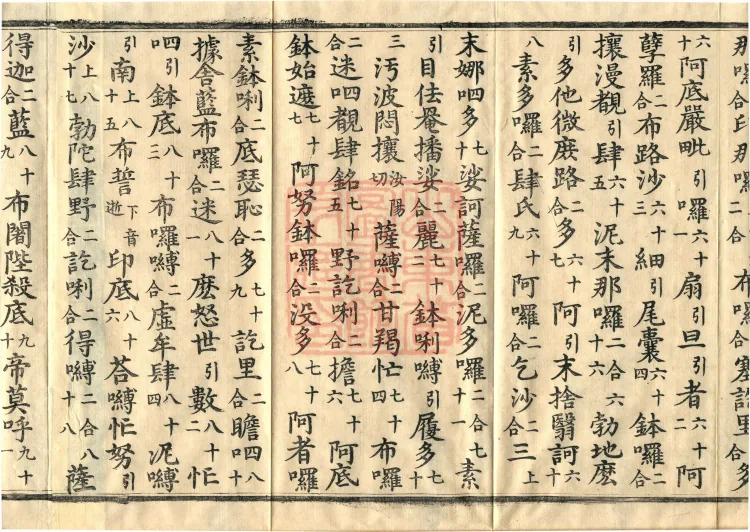 六十阿底嚴毗引囉六十一扇引旦引者六十二阿
孽囉二合布路沙六十三細引尾囊六十四鉢囉二合
攘漫覩引肆六十五泥末那囉二合六十六勃地麽
引多他微麽路二合多六十七阿引末捨翳訶六十
八素多囉二合肆氏六十九阿囉二合乞沙二合三上
末娜呬多七十娑訶薩囉二合泥多囉二合七十一素
引目佉菴播娑二合麗七十二鉢唎嚩引履多七十
三汚波悶攘汝陽切薩嚩二合甘羯忙七十四布囉
二合迷呬覩肆銘七十五野訖唎二合擔七十六阿底
鉢始遮七十七阿努鉢囉二合没多七十八阿者囉
素鉢唎二合底瑟恥二合多七十九訖里二合瞻四八十
據舍藍布囉二合迷八十一麽怒世引數八十二忙
四引鉢底八十三布囉嚩二合虛牟肆八十四泥嚩
引南上八十五布誓下音逝印底八十六荅嚩忙努引
沙上八十七勃陀肆野二合訖唎二合得嚩二合八十八薩
得迦二合藍八十九布闍陛殺底九十帝莫呼九十一